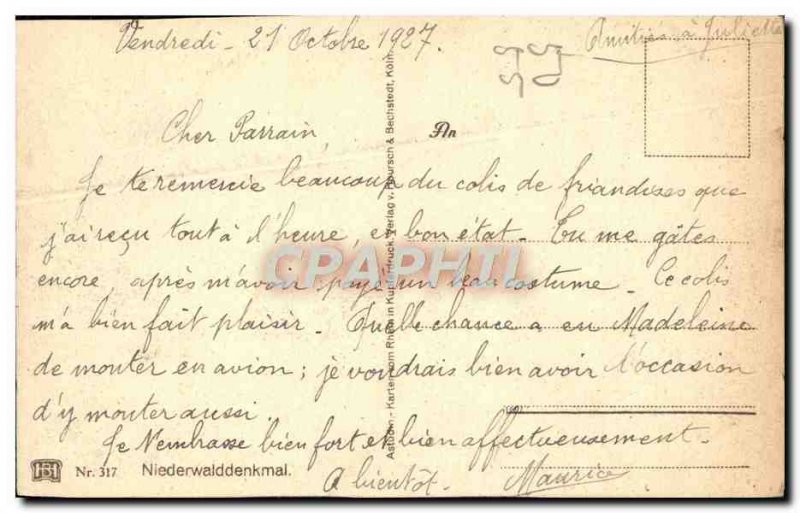 Vendredi - 21 Octobre 1927.
Amitiés à Juliette
Cher Parrain,
An
Je te remercie beaucoup du colis de friandises que
j'ai reçu tout à l'heure, en bon état. Tu me gâtes
encore, après m'avoir payé un beau costume. Ce colis
m'a bien fait plaisir. Quelle chance a eu Madeleine
de monter en avion ; je voudrais bien avoir l'occasion
d'y monter aussi.
Je t'embrasse bien fort et bien affectueusement.
A bientôt. Maurice
HB
Nr. 317 Niederwalddenkmal.
Karten vom Rhein in Verlag v. Hoursch & Bechstedt, Köln
CPAPHIL